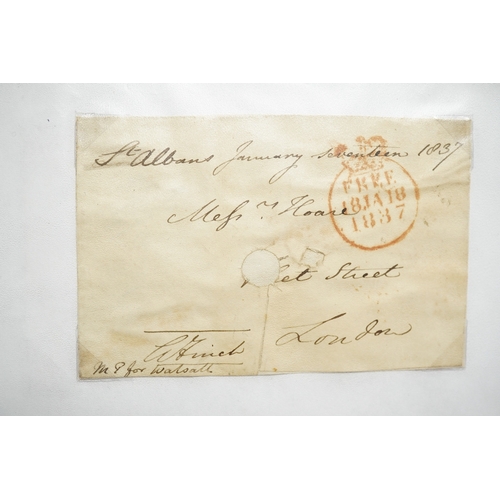 St Albans January seventeen 1837
FREE
18JA18
1837
Messrs Hoare
Street
London
Finch
M P for Walsall